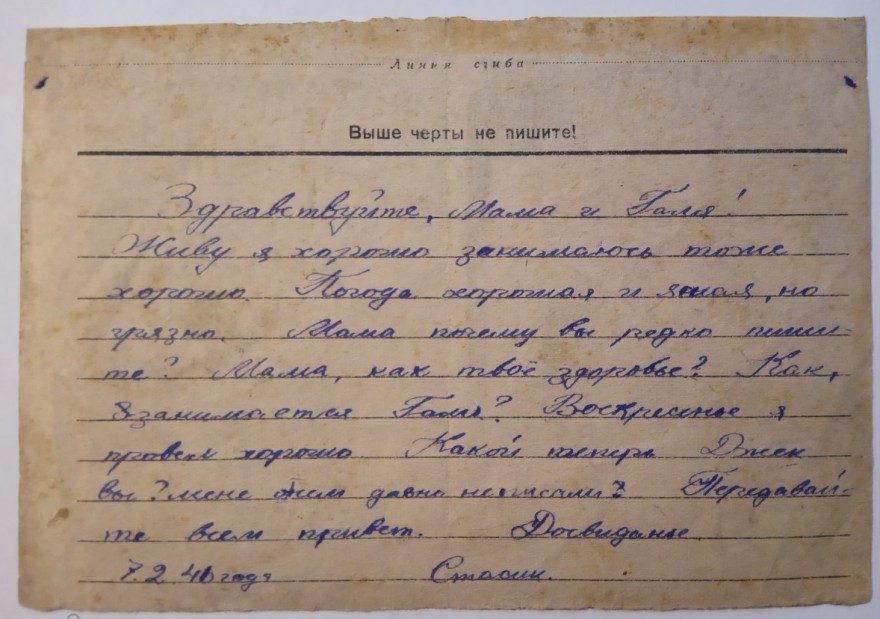 Линия сгиба
Выше черты не пишите!
Здравствуйте, Мама и Галя!
Живу я хорошо занимаюсь тоже
хорошо. Погода хорошая и ясная, но
грязно. Мама почему вы редко пиши-
те? Мама, как твоё здоровье? Как,
занимается Галя? Воскресенье я
провел хорошо Какой теперь Джек
вы ? мене о нем давно не писали? Передавай-
те всем привет. Досвиданье
7.2.46 года Стасик.